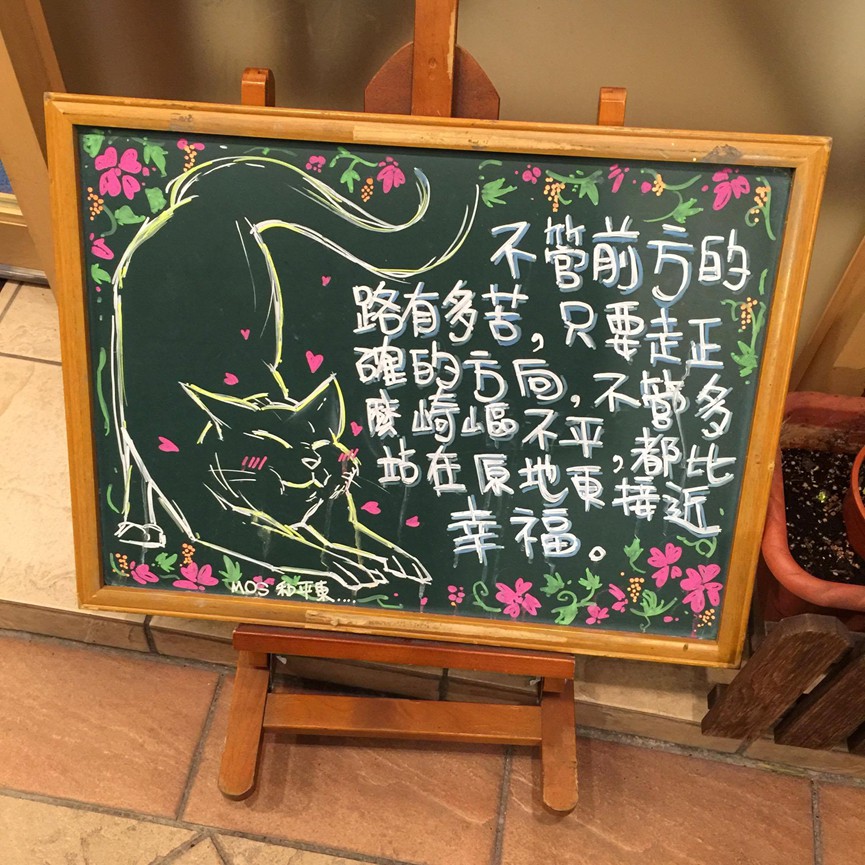 不管前方的
路有多苦，只要走正
確的方向，不管多
麼崎嶇不平，都比
站在原地更接近
幸福。
MOS 和平東....